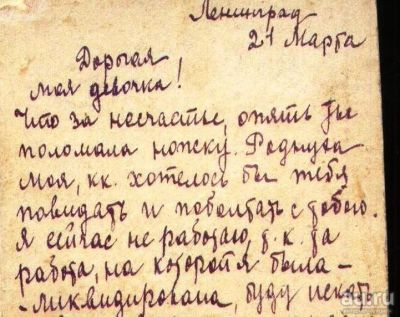 Ленинград
21 Марта
Дорогая
моя девочка!
Что за несчастье, опять ты
поломала ножку. Роднуся
моя, кк. хотелось бы тебя
повидать и поболтать с тобою.
Я сейчас не работаю, т.к. та
работа, на которой я была –
– ликвидирована, буду искать
au.ru